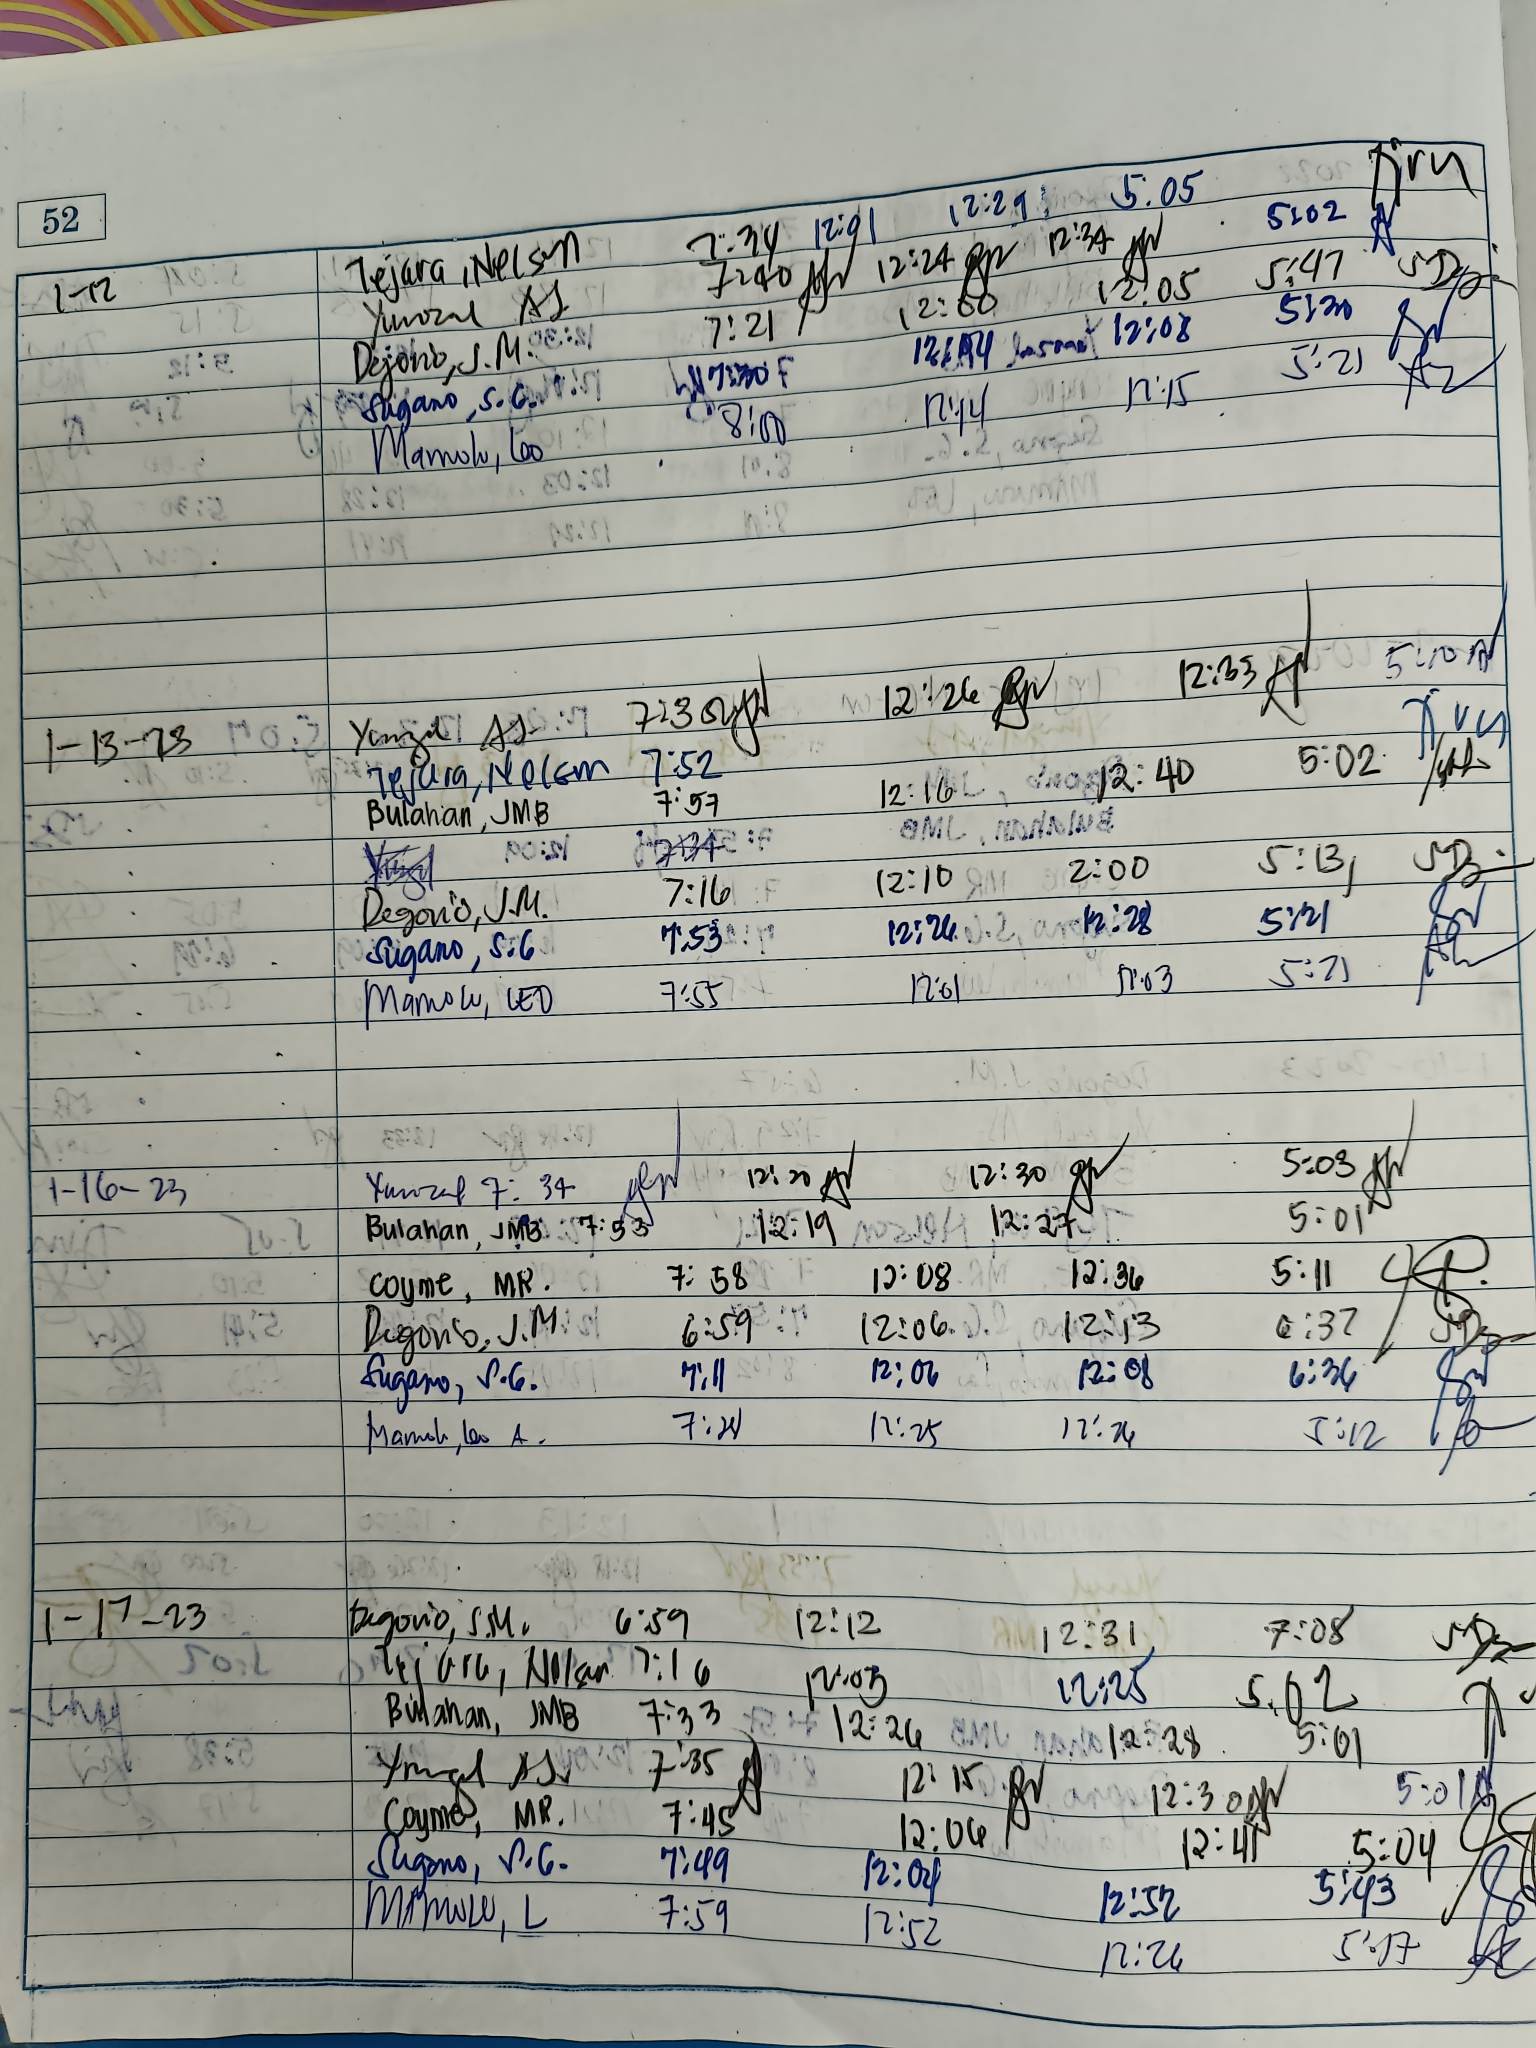 52
1-12 Tejara, Nelson 7:34 12:01 12:29 5:05
Yunzal AJ 7:40 12:24 12:34 5:02
Degorio, J.M. 7:21 12:00 12:05 5:47
Sugano, S.G. 7:30 12:04 12:08 5:20
Mamolo, Leo 8:00 12:14 12:15 5:21
1-13-23 Yunzal AJ 7:30 12:26 12:33 5:10
Tejara, Nelson 7:52
Bulahan, JMB 7:57 12:16 12:40 5:02
Degorio, J.M. 7:16 12:10 2:00 5:13
Sugano, S.G 7:53 12:26 12:28 5:21
Mamolo, LEO 7:55 12:01 12:03 5:21
1-16-23 Yunzal 7:34 12:20 12:30 5:03
Bulahan, JMB 7:53 12:19 12:27 5:01
Coyme, MR. 7:58 12:08 12:36 5:11
Degorio, J.M. 6:59 12:06 12:13 6:37
Sugano, S.G. 7:11 12:06 12:08 6:36
Mamolo, Leo A. 12:25 12:26 5:12
1-17-23 Degorio, J.M. 6:59 12:12 12:31 7:08
Tejara, Nelson 7:16 12:03 12:25 5:02
Bulahan, JMB 7:33 12:26 12:28 5:01
Yunzal AJ 7:35 12:15 12:30 5:01
Coyme, MR. 7:45 12:06 12:41 5:04
Sugano, S.G. 7:49 12:04 12:52 5:43
Mamolo, L 7:59 12:52 12:26 5:17